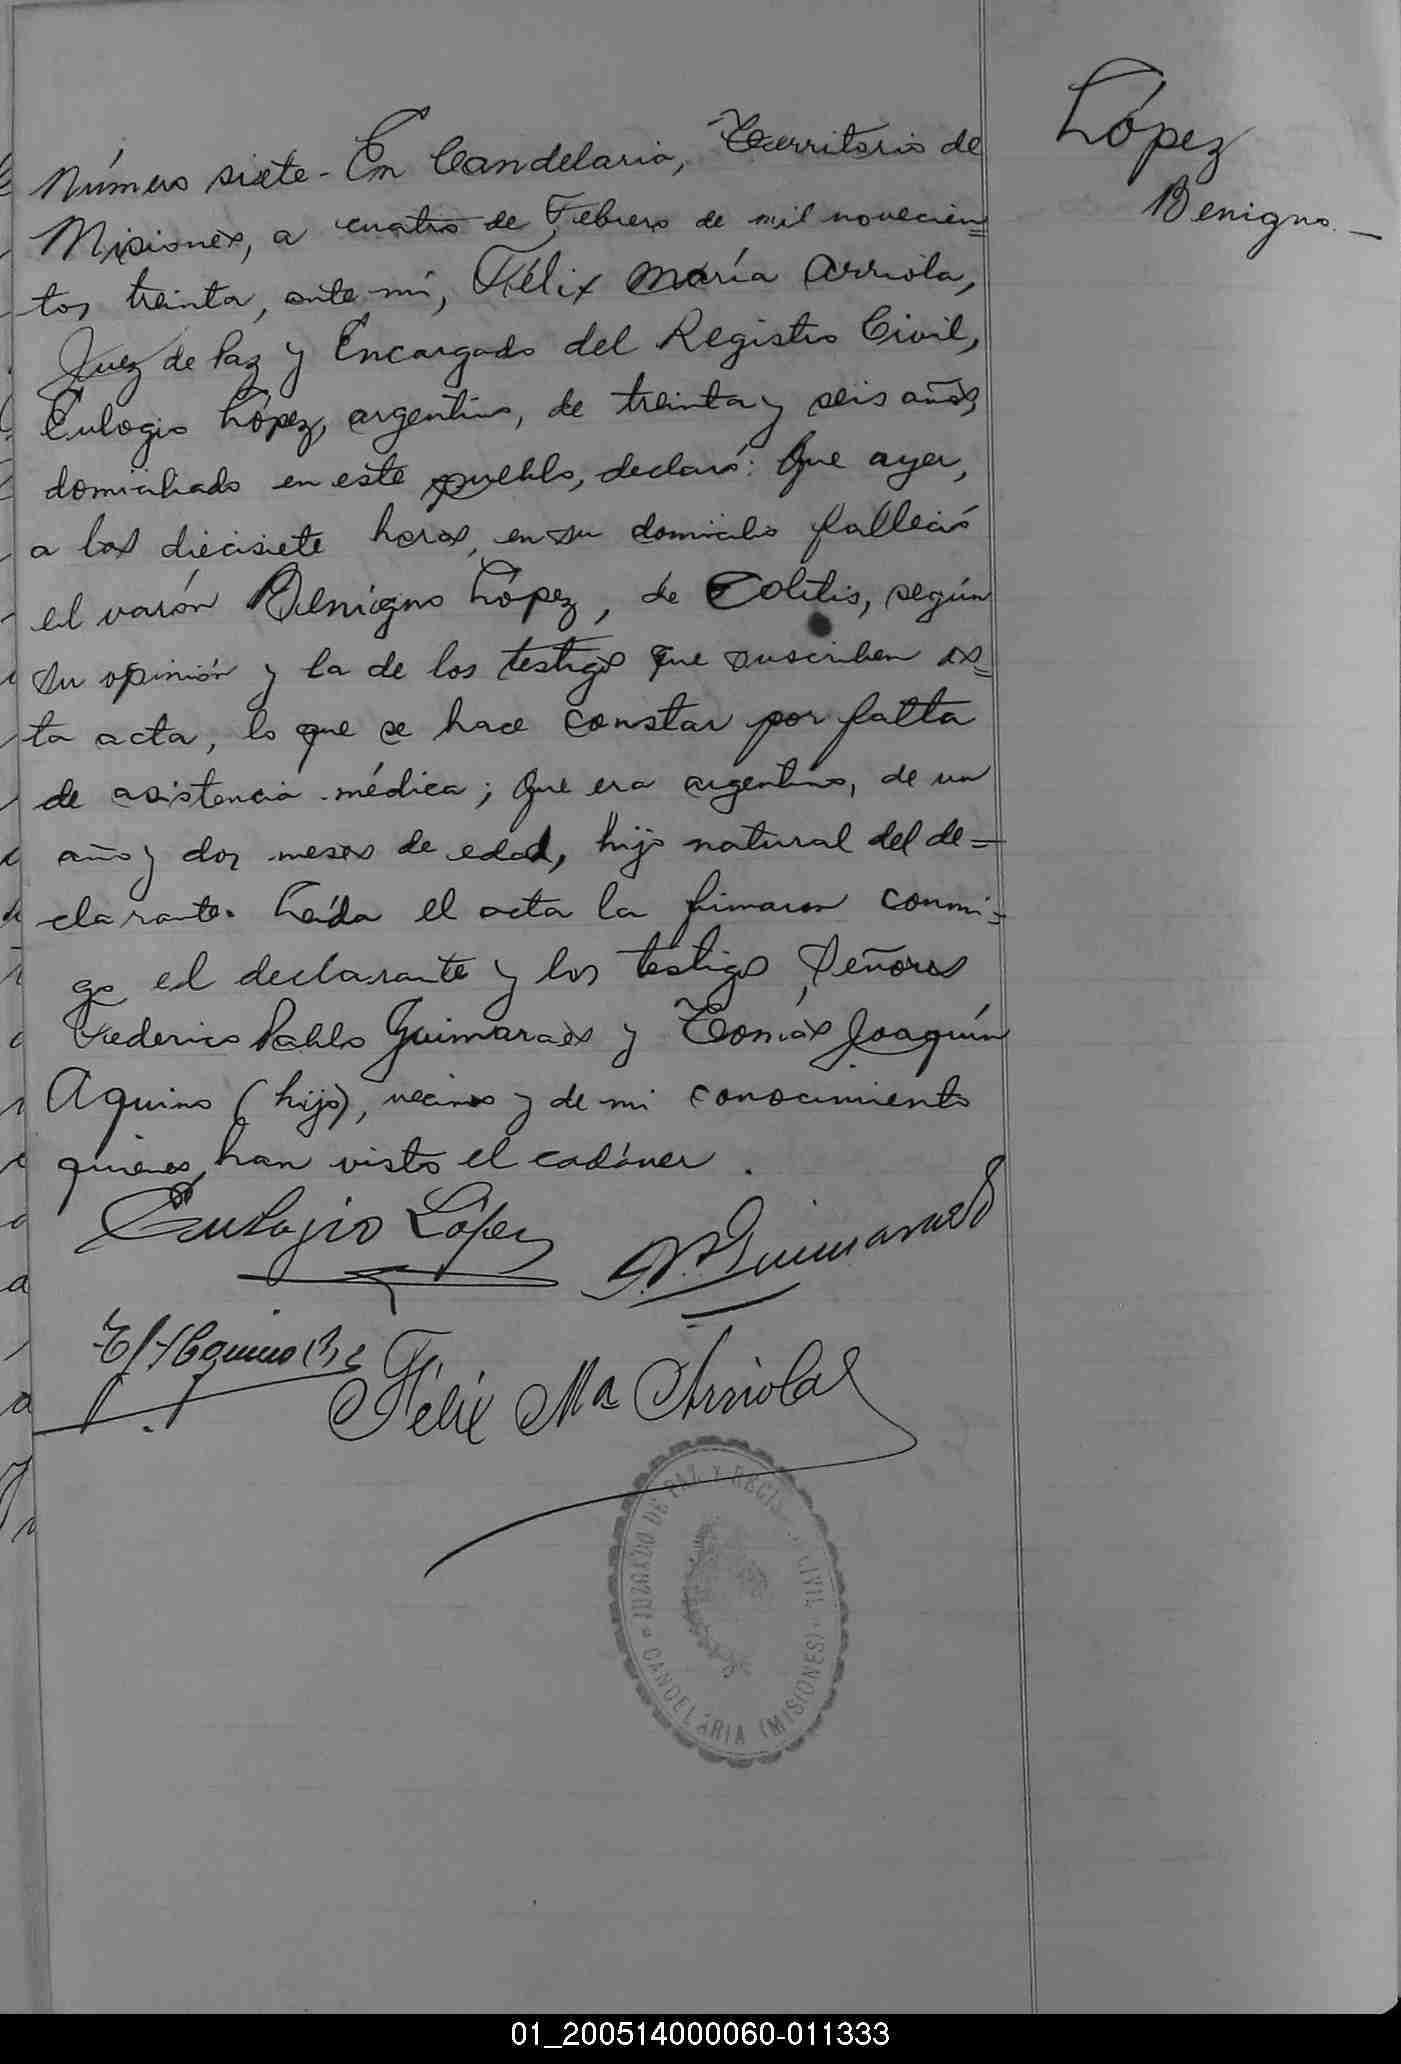 López
Benigno.—
Número siete - En Candelaria, Territorio de
Misiones, a cuatro de Febrero de mil novecien=
tos treinta, ante mí, Félix María Arriola,
Juez de Paz y Encargado del Registro Civil,
Eulogio López, argentino, de treinta y seis años,
domiciliado en este pueblo, declaró: Que ayer,
a las diecisiete horas, en su domicilio falleció
el varón Benigno López, de Colitis, según
su opinión y la de los testigos que suscriben es=
ta acta, lo que se hace constar por falta
de asistencia médica; Que era argentino, de un
año y dos meses de edad, hijo natural del de=
clarante. Leída el acta la firmaron conmi=
go el declarante y los testigos, Señores
Federico Pablo Guimaraes y Tomás Joaquín
Aquino (hijo), vecinos y de mi conocimiento
quienes han visto el cadáver.
Eulojio López
Guimaraes
Aquino
Félix Ma Arriola
JUZGADO DE PAZ Y REGISTRO CIVIL
CANDELARIA (MISIONES)
01_200514000060-011333